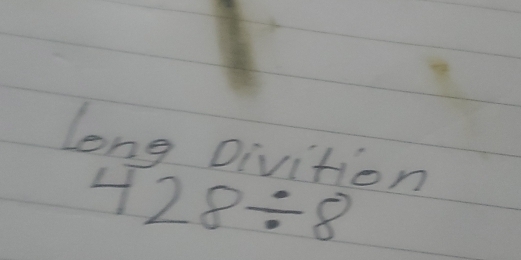 long Divition
428÷8